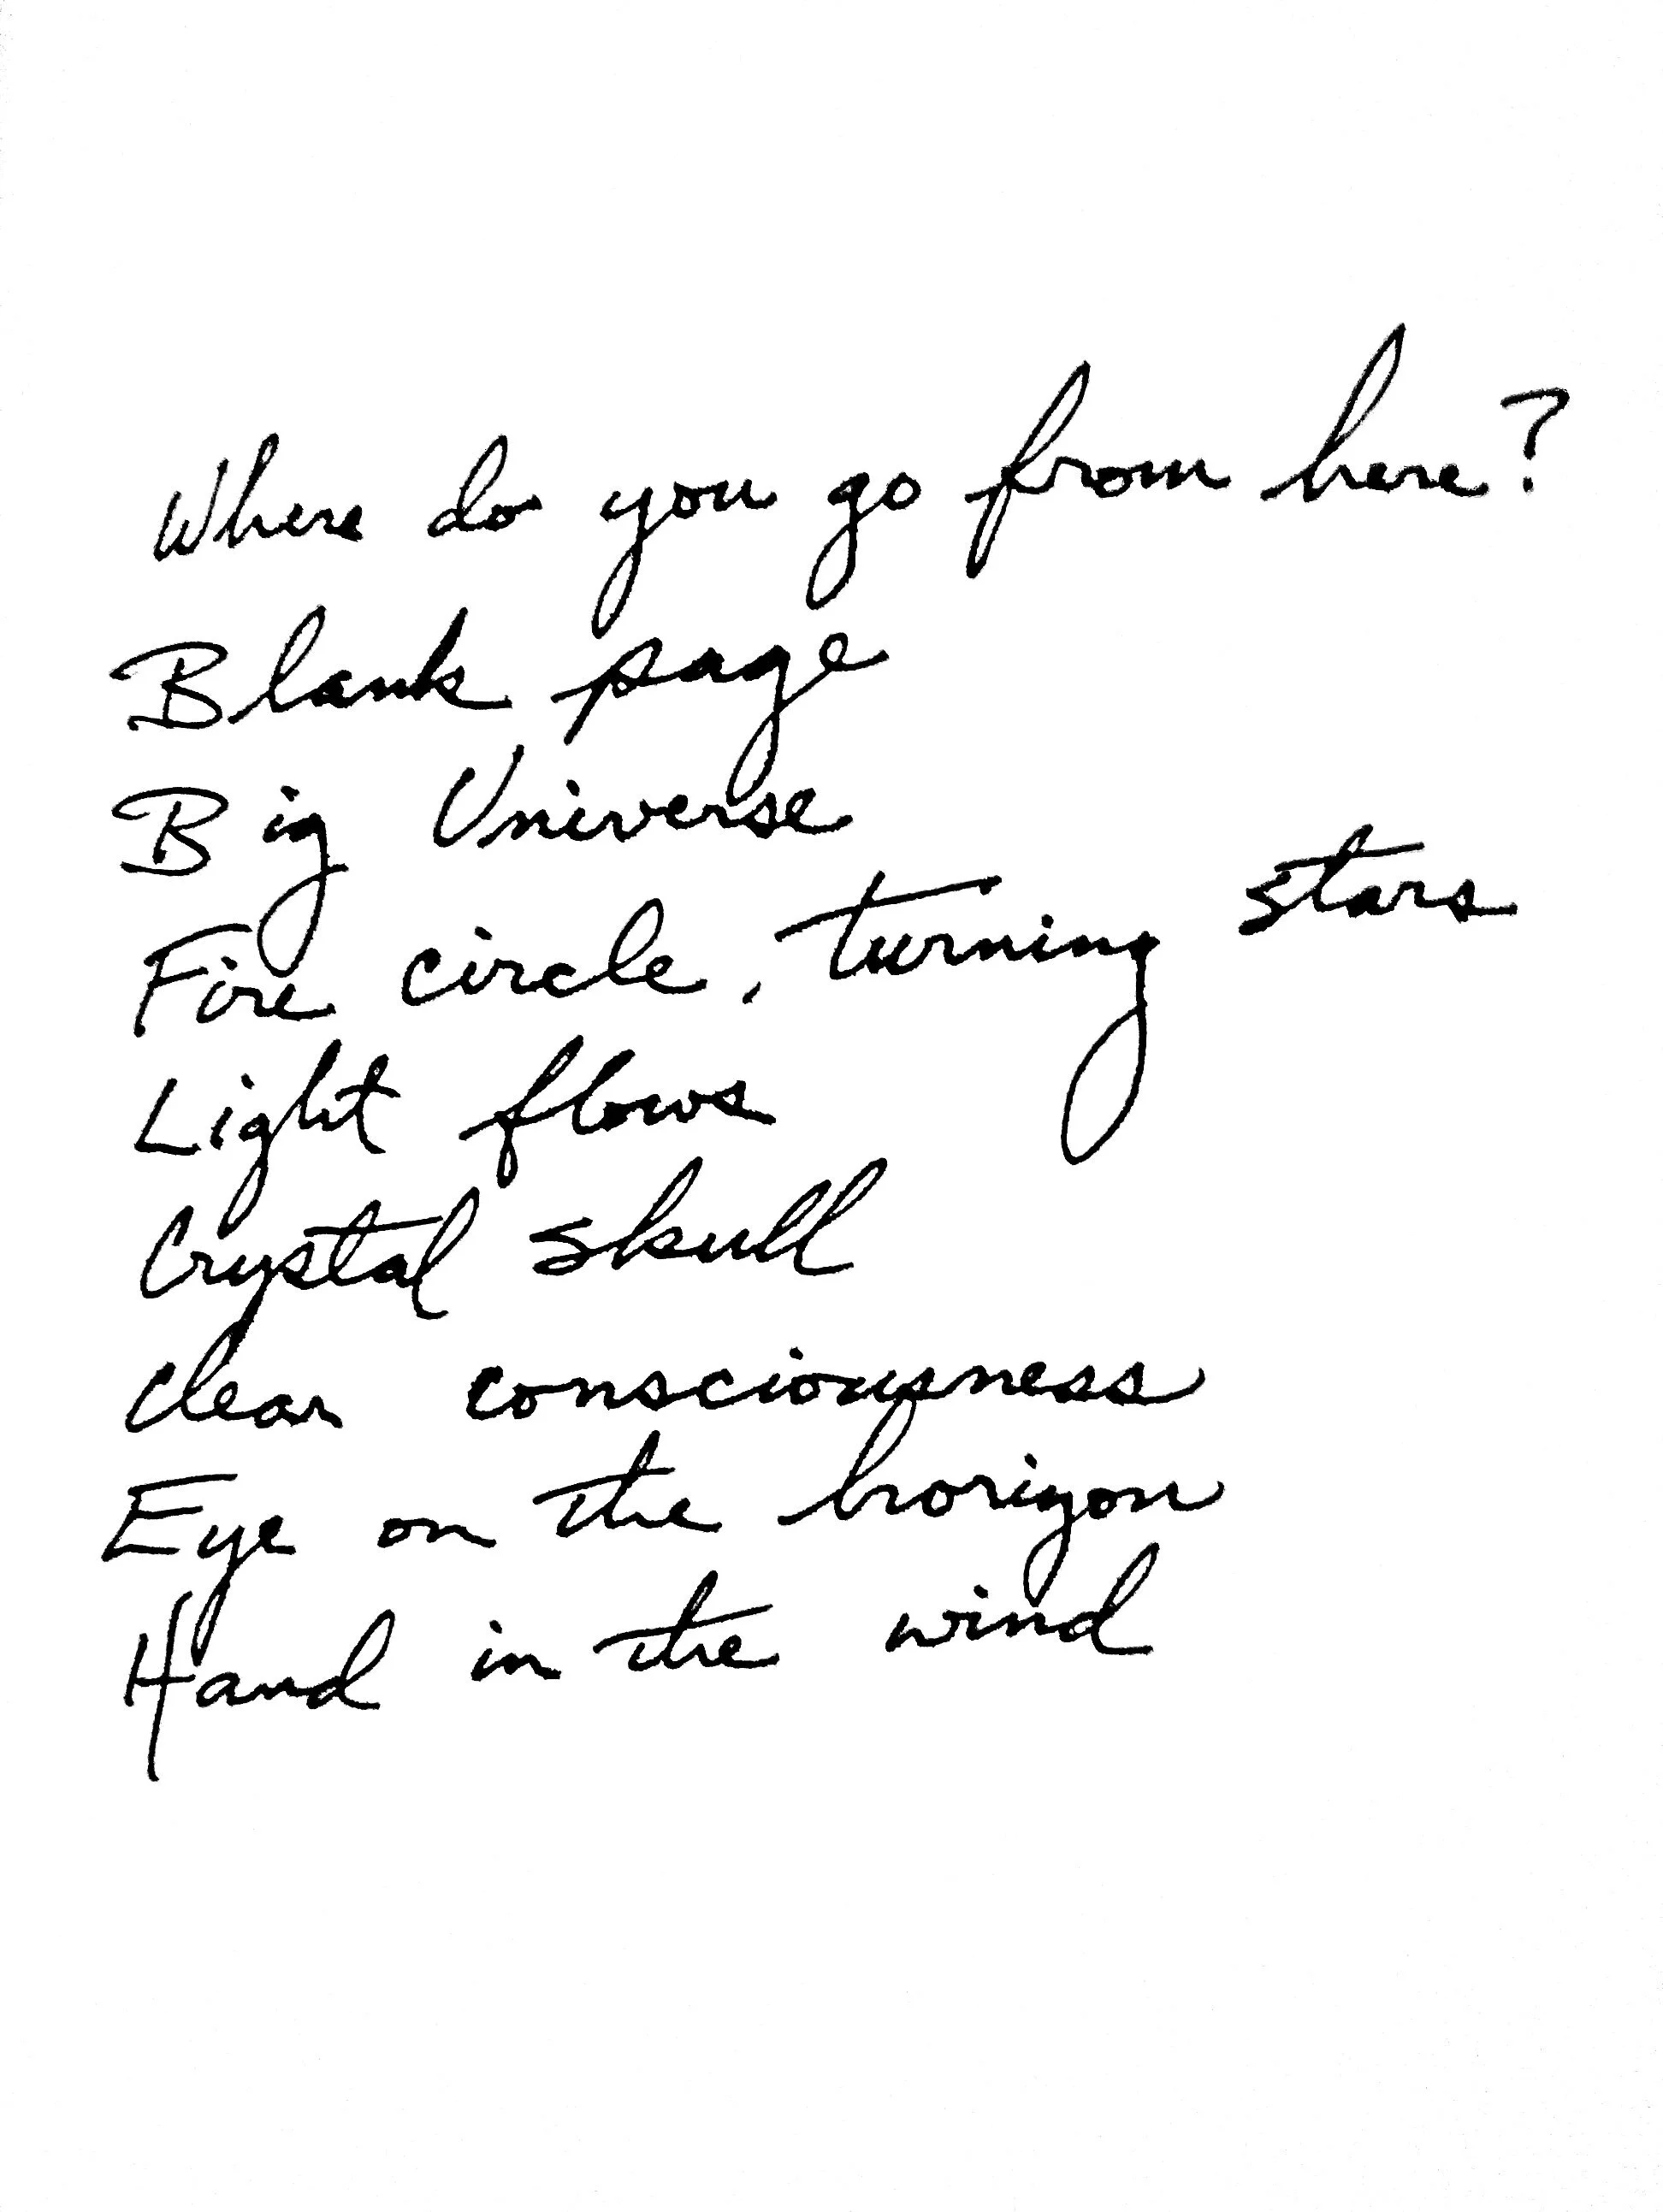 Where do you go from here?
Blank page
Big Universe
Fire circle, turning stars
Light flows
Crystal skull
clear consciousness
Eye on the horizon
Hand in the wind